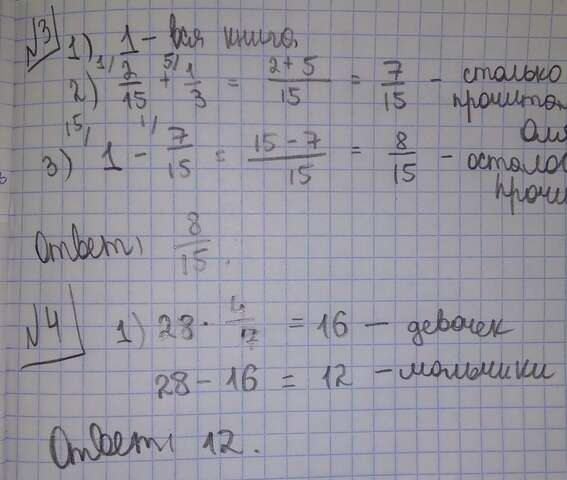 №3 1) 1 - вся книга
2) 2/15 + 1/3 = (2+5)/15 = 7/15 - столько
прочита
Оля
3) 1 - 7/15 = (15-7)/15 = 8/15 - остало
прочи
Ответ: 8/15.
№4 1) 28 · 4/7 = 16 - девочек
28 - 16 = 12 - мальчики
Ответ: 12.